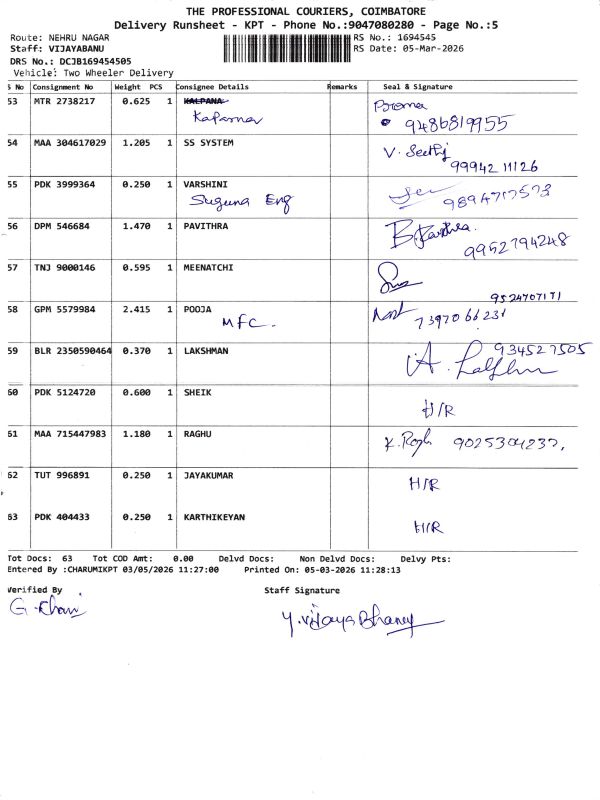 THE PROFESSIONAL COURIERS, COIMBATORE
Delivery Runsheet - KPT - Phone No.:9047080280 - Page No.:5
Route: NEHRU NAGAR
RS No.: 1694545
Staff: VIJAYABANU
RS Date: 05-Mar-2026
DRS No.: DCJB169454505
Vehicle: Two Wheeler Delivery
S No Consignment No Weight PCS Consignee Details Remarks Seal & Signature
53 MTR 2738217 0.625 1 KALPANA
9486819955
54 MAA 304617029 1.205 1 SS SYSTEM V. Seethj
99942 11126
55 PDK 3999364 0.250 1 VARSHINI
Suguna Eng 9894717573
56 DPM 546684 1.470 1 PAVITHRA
9952794248
57 TNJ 9000146 0.595 1 MEENATCHI
9524707171
58 GPM 5579984 2.415 1 POOJA
MFC. 7397066231
59 BLR 2350590464 0.370 1 LAKSHMAN 934527505
60 PDK 5124720 0.600 1 SHEIK
H/R
61 MAA 715447983 1.180 1 RAGHU 9025304237.
62 TUT 996891 0.250 1 JAYAKUMAR
H/R
63 PDK 404433 0.250 1 KARTHIKEYAN
H/R
Tot Docs: 63 Tot COD Amt: 0.00 Delvd Docs: Non Delvd Docs: Delvy Pts:
Entered By :CHARUMIKPT 03/05/2026 11:27:00 Printed On: 05-03-2026 11:28:13
Verified By Staff Signature
Y.Vijaya Bhanu